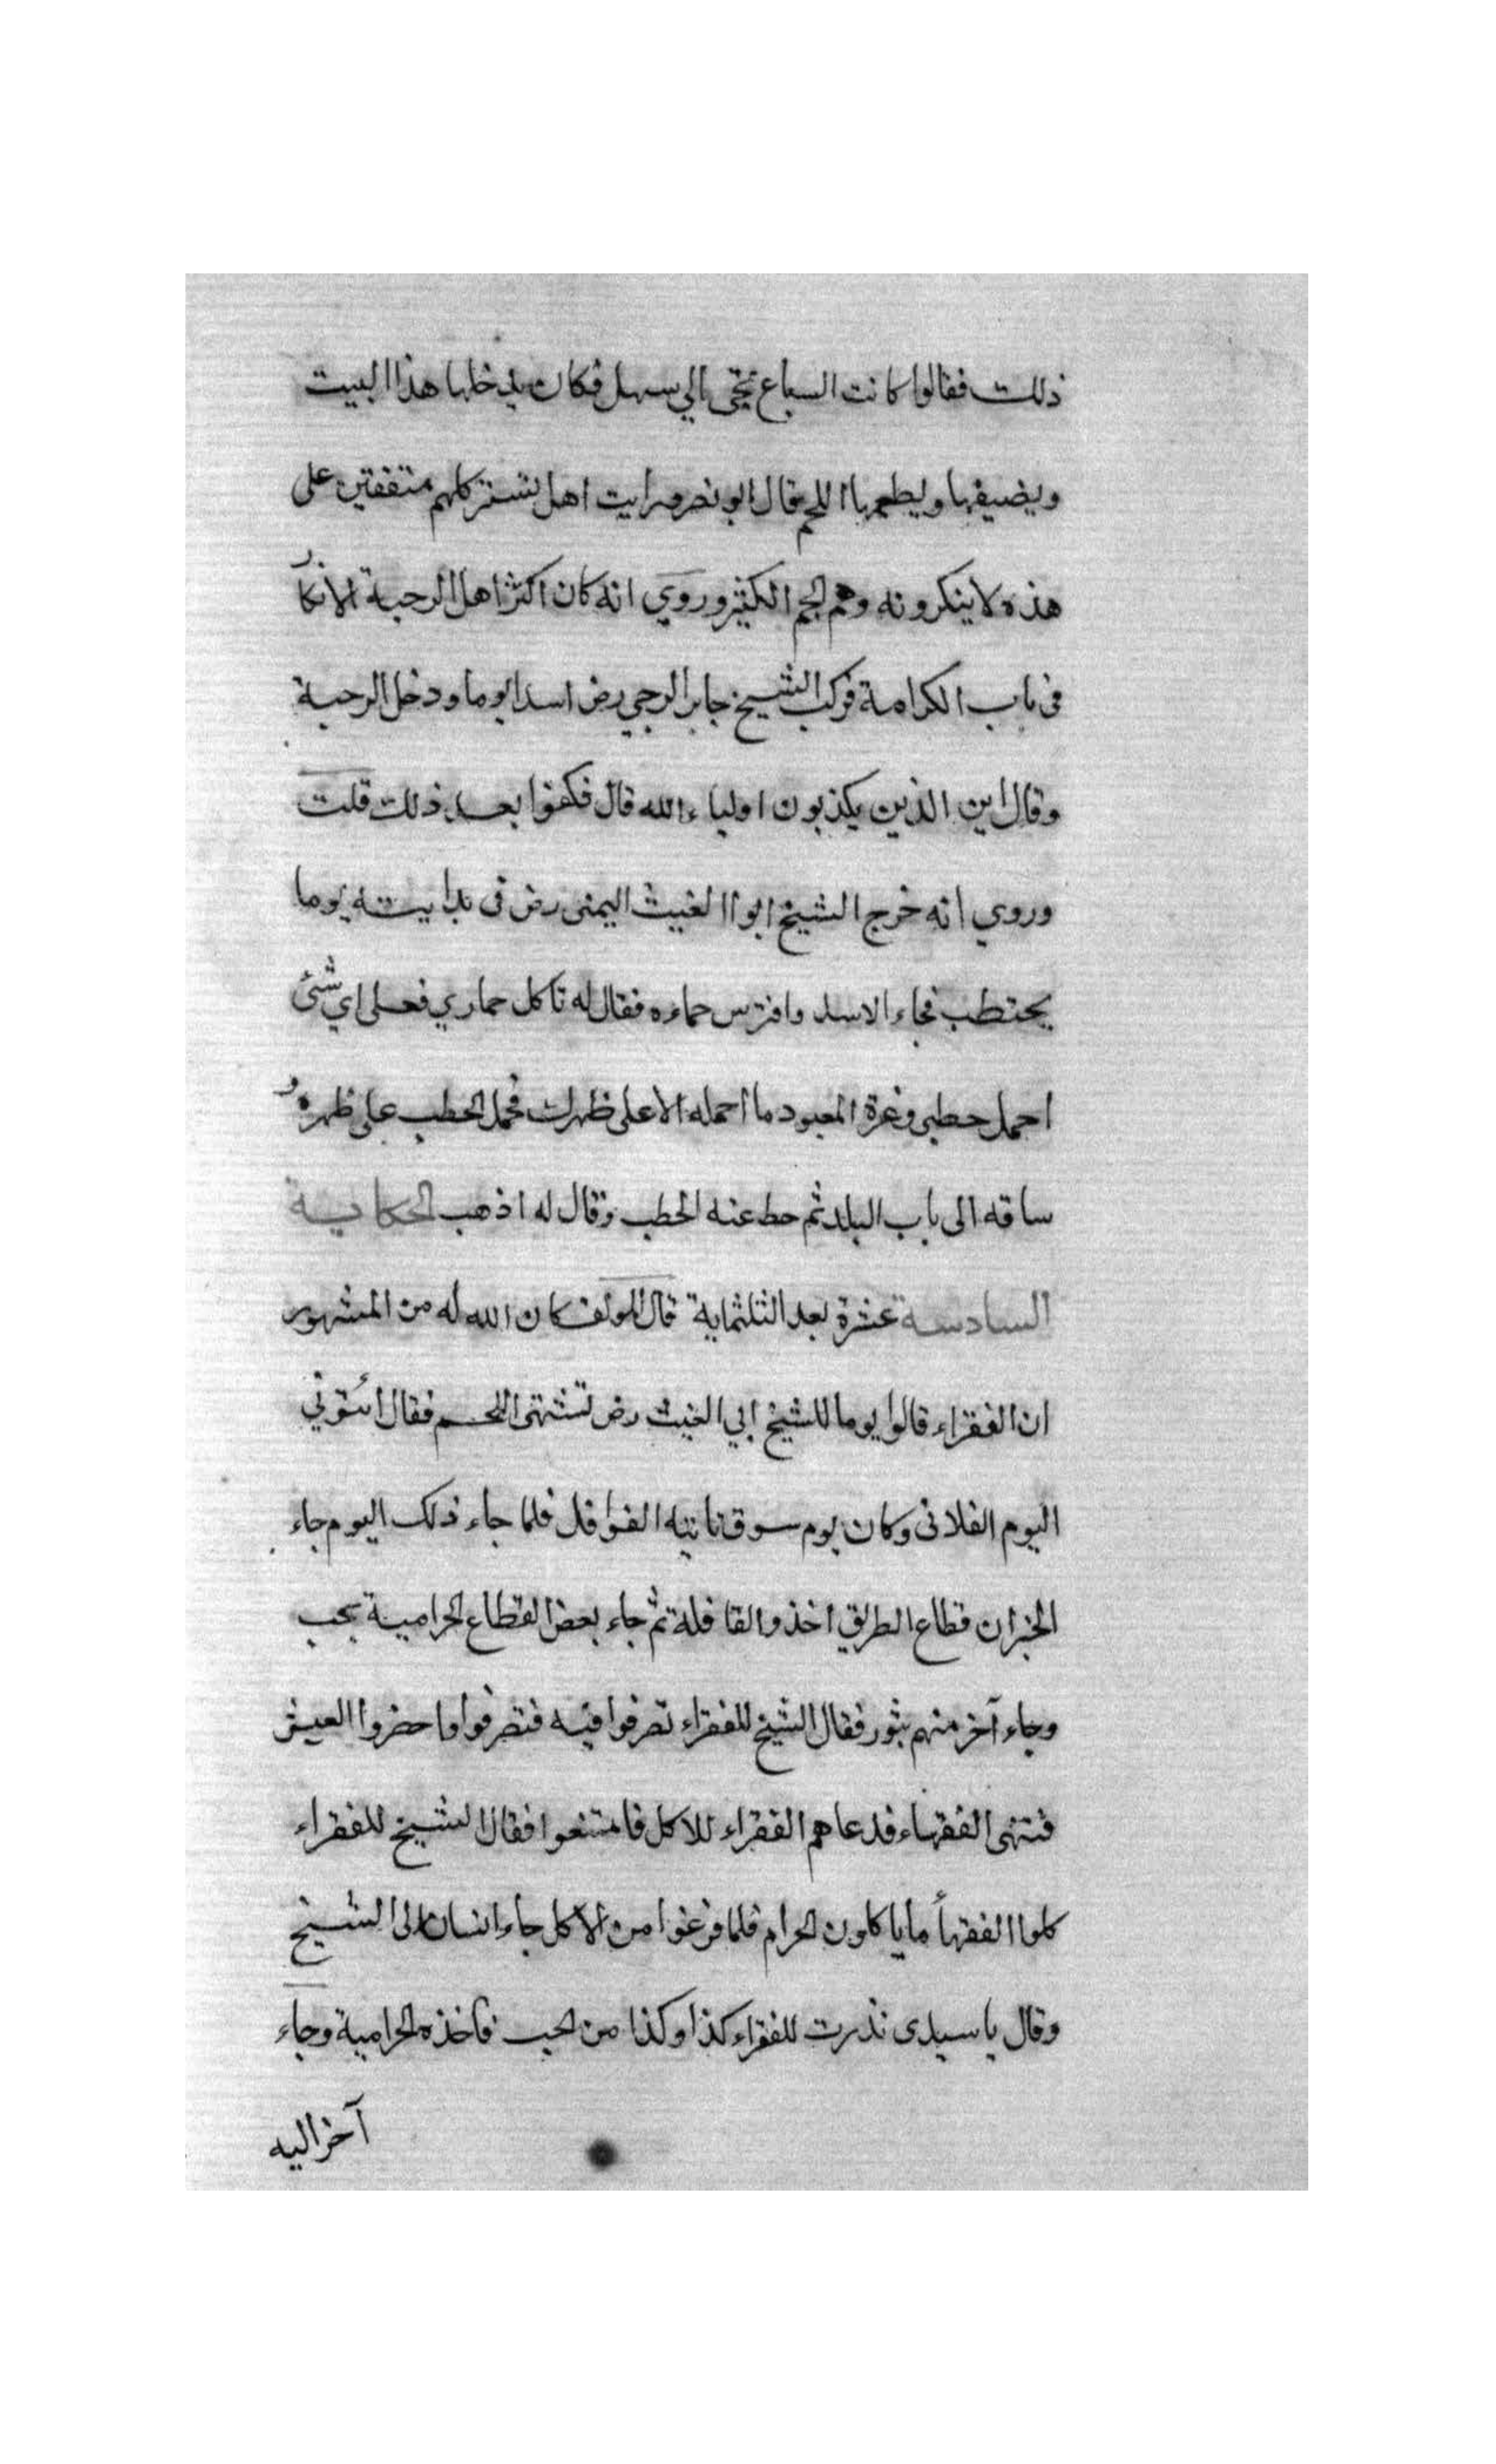 ذلك فقالوا كانت السباع تجئ الي سهل فكان يدخلها هذا البيت
ويضيفها ويطعمها اللحم قال ابو نصر ورايت اهل تستر كلهم متفقين على
هذه لا ينكرونه وهم الجم الكثير وروي انه كان اكثر اهل الرحبة الانكار
فى باب الكرامة فركب الشيخ جابر الرحبي رض اسدا يوما ودخل الرحبة
وقال اين الذين يكذبون اولياء الله قال فكفوا بعد ذلك قلت
وروي انه خرج الشيخ ابو الغيث اليمنى رض فى بدايته يوما
يحتطب فجاء الاسد وافترس حماره فقال له تاكل حماري فعلى اي شئ
احمل حطبى وعزة المعبود ما احمله الا على ظهرك فحمل الحطب على ظهره و
ساقه الى باب البلد ثم حط عنه الحطب وقال له اذهب الحكاية
السادسة عشرة بعد الثلثماية قال المولف كان الله له من المشهور
ان الفقراء قالوا يوما للشيخ ابي الغيث رض نشتهى اللحم فقال ائتوني
اليوم الفلانى وكان يوم سوق تاتيه القوافل فلما جاء ذلك اليوم جاء
الخبر ان قطاع الطريق اخذوا القافلة ثم جاء بعض القطاع الحرامية بحب
وجاء آخر منهم بثور فقال الشيخ للفقراء تصرفوا فيه فتصرفوا واحضروا العيش
فتنحى الفقهاء فدعاهم الفقراء للاكل فامتنعوا فقال الشيخ للفقراء
كلوا الفقهأ ما ياكلون الحرام فلما فرغوا من الاكل جاء انسان الى الشيخ
وقال يا سيدى نذرت للفقراء كذا وكذا من الحب فاخذه الحرامية وجاء
آخر اليه